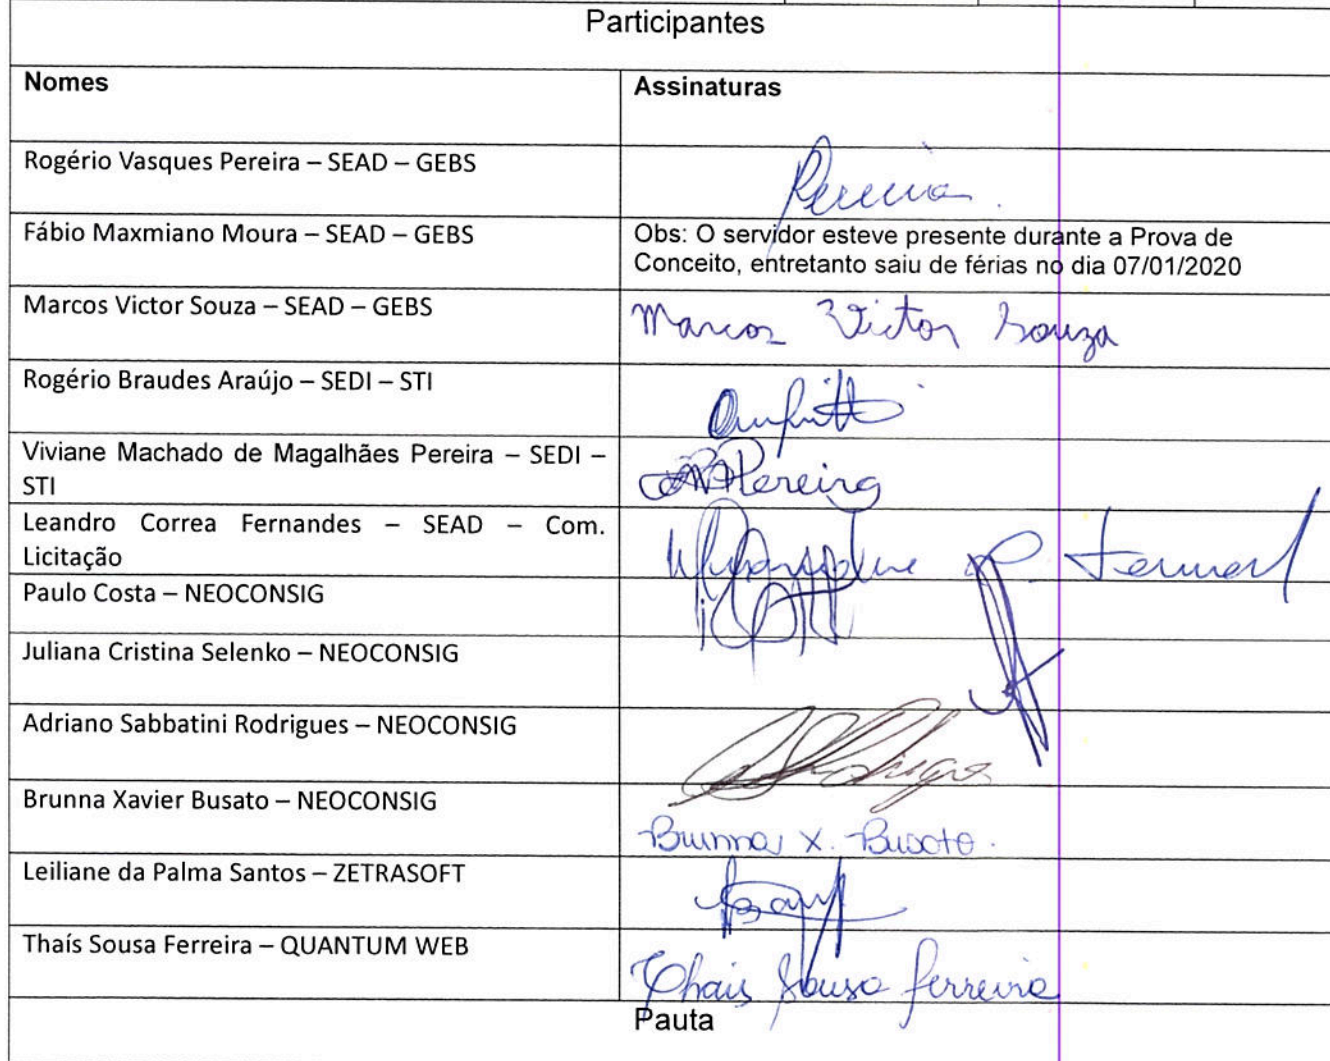 Participantes
Nomes Assinaturas
Rogério Vasques Pereira – SEAD – GEBS
Pereira.
Fábio Maxmiano Moura – SEAD – GEBS
Obs: O servidor esteve presente durante a Prova de
Conceito, entretanto saiu de férias no dia 07/01/2020
Marcos Victor Souza – SEAD – GEBS
Marcos Victor Souza
Rogério Braudes Araújo – SEDI – STI
Viviane Machado de Magalhães Pereira – SEDI –
STI
Pereira
Leandro Correa Fernandes – SEAD – Com.
Licitação
Paulo Costa – NEOCONSIG
Juliana Cristina Selenko – NEOCONSIG
Adriano Sabbatini Rodrigues – NEOCONSIG
Brunna Xavier Busato – NEOCONSIG
Brunna X. Busato.
Leiliane da Palma Santos – ZETRASOFT
Thaís Sousa Ferreira – QUANTUM WEB
Thais Sousa Ferreira
Pauta